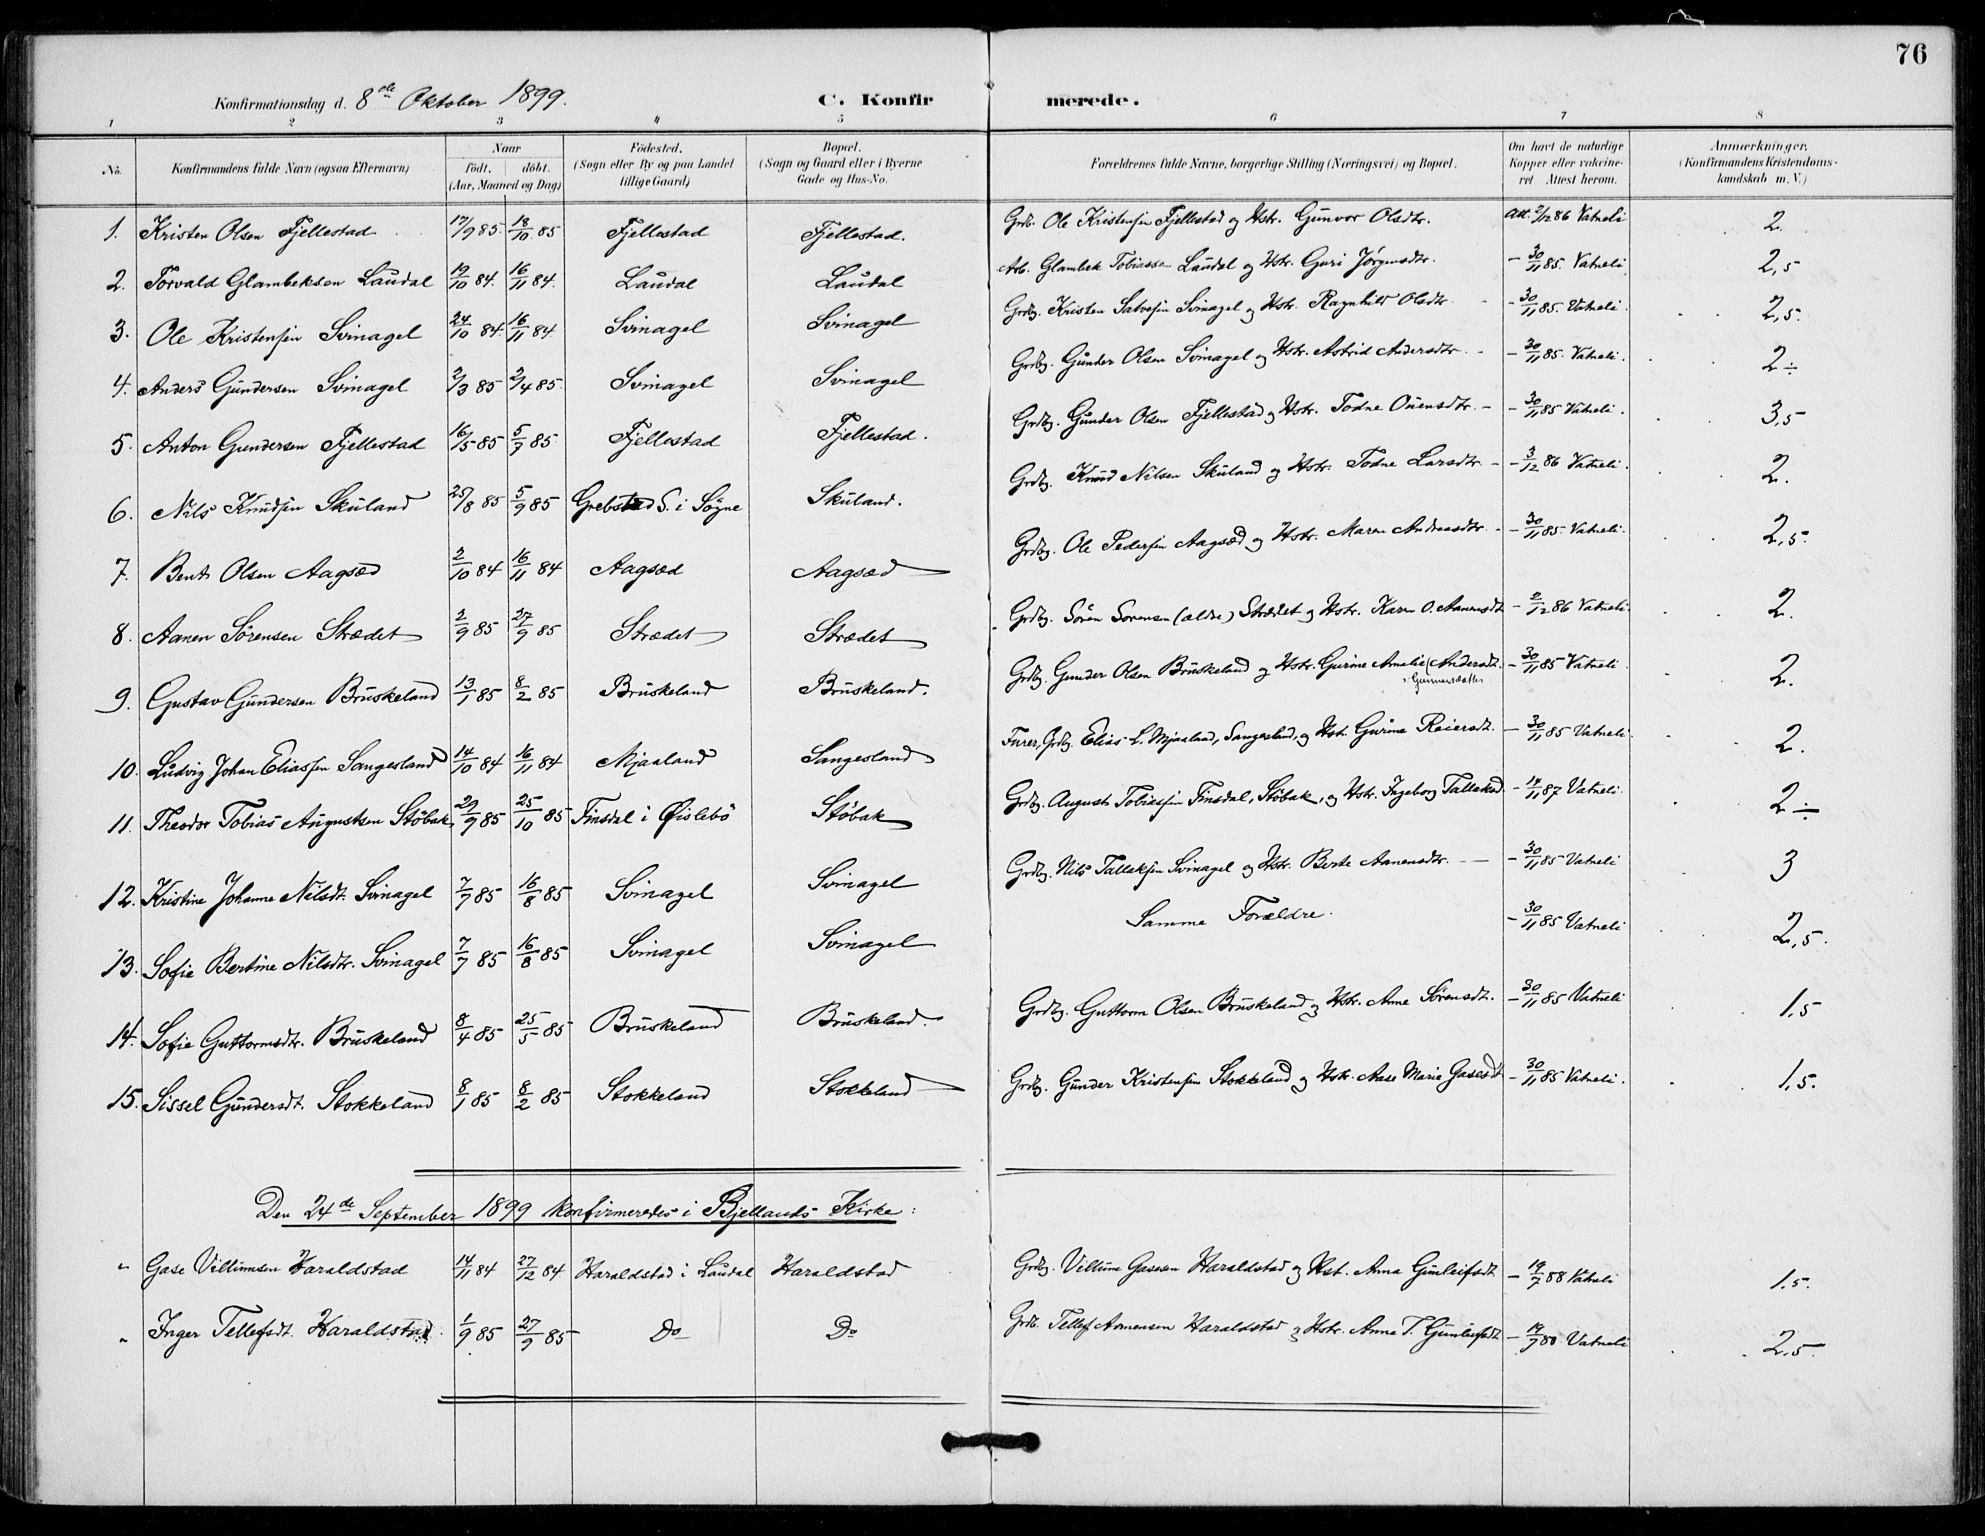 76
Konfirmationsdag d. 8de Oktober 1899. C. Konfirmerede.
1 2 3 4 5 6 7 8
No. Konfirmandens fulde Navn (ogsaa Efternavn) Naar født. døbt. (Aar, Maaned og Dag) Fødested. (Sogn eller By og paa Landet tillige Gaard) Bopæl. (Sogn og Gaard eller i Byerne Gade og Hus-No. Forældrenes fulde Navne, borgerlige Stilling (Næringsvei) og Bopæl. Om havt de naturlige Kopper eller vakcineret Attest herom. Anmærkninger. (Konfirmandens Kristendomskundskab m. V.)
1. Kristen Olsen Fjellestad 17/9 85 18/10 85 Fjellestad Fjellestad. Grdb. Ole Kristensen Fjellestad og Hstr. Gunvor Olsdtr. Att. 2/12 86 Vatneli 2.
2. Torvald Glambeksen Laudal 19/10 84. 16/11 84. Laudal Laudal Arb. Glambek Tobiassen Laudal og Hstr. Guri Jørgensdtr. - 30/11 85. Vatneli 2,5
3. Ole Kristensen Svinagel 24/10 84. 16/11 84. Svinagel Svinagel Grdbg. Kristen Salvesen Svinagel og Hstr. Ragnhild Olsdtr. - 30/11 85. Vatneli. 2,5.
4. Anders Gundersen Svinagel 2/3 85 2/4 85. Svinagel Svinagel Grdbg. Gunder Olsen Svinagel og Hstr. Astrid Andersdtr. - 30/11 85. Vatneli. 2÷
5. Anton Gundersen Fjellestad 16/5 85 5/7 85. Fjellestad Fjellestad. Grdbg. Gunder Olsen Fjellestad og Hstr. Todne Ouensdtr. - 30/11 85 Vatneli. 3,5
6. Nils Knudsen Skuland 25/8 85 5/9 85 Grebstad S. i Søgne Skuland. Grdbg. Knud Nilsen Skuland og Hstr. Todne Larsdtr. - 3/12 86 Vatneli. 2.
7. Bent Olsen Aagsæd 2/10 84 16/11 84 Aagsæd Aagsæd Grdbg. Ole Pedersen Aagsæd og Hstr. Maren Andreasdtr. - 30/11 85. Vatneli. 2,5.
8. Aanen Sørensen Strædet 2/9 85 27/9 85 Strædet Strædet Grdbg. Søren Sørensen (ældre) Strædet og Hstr. Karen O. Aanensdt. - 2/12 86 Vatneli. 2.
9. Gustav Gundersen Bruskeland 13/1 85 8/2 85 Bruskeland Bruskeland. Grdbg. Gunder Olsen Bruskeland og Hstr. Gurine Amalie (Andersdt. - 30/11 85 Vatneli. 2.
10. Ludvig Johan Eliassen Sangesland 14/10 84 16/11 84 Mjaaland Sangesland Furer, Grdbg. Elias L. Mjaaland, Sangesland, og Hstr. Gurine Reiersdt. - 30/11 85 Vatneli. 2.
11. Theodor Tobias Augustsen Støbak 29/9 85 25/10 85 Finsdal i Øislebø Støbak Grdbg. August Tobiassen Finsdal, Støbak, og Hstr. Ingeborg Tallaksd. - 14/11 87 Vatneli. 2÷
12. Kristine Johanne Nilsdt. Svinagel 7/7 85 16/8 85 Svinagel Svinagel Grdbg. Nils Tallaksen Svinagel og Hstr. Berte Aanensdtr. - 30/11 85 Vatneli 3
13. Sofie Bertine Nilsdtr. Svinagel 7/7 85 16/8 85 Svinagel Svinagel Samme Forældre. - 30/11 85 Vatneli 2,5.
14. Sofie Guttormsdtr. Bruskeland 8/4 85 25/5 85 Bruskeland Bruskeland. Grdbg. Guttorm Olsen Bruskeland og Hstr. Anne Sørensdt. - 30/11 85 Vatneli 1,5
15. Sissel Gundersdt. Stokkeland 8/1 85 8/2 85 Stokkeland Stokkeland Grdbg. Gunder Kristensen Stokkeland og Hstr. Aase Marie Gasesdt. - 30/11 85 Vatneli. 1,5.
Den 24de September 1899 konfirmeredes i Bjellands Kirke:
" Gase Villumsen Haraldstad 14/11 84 27/12 84 Haraldstad i Laudal Haraldstad Grdbg. Villum Gasesen Haraldstad og Hst. Anna Gunleifsdt. - 19/7 88 Vatneli 1.5.
" Inger Tellefsdt. Haraldstad. 1/9 85 27/9 85 Do Do Grdb. Tellef Aanensen Haraldstad og Hstr. Anne T. Gunleifsdt. - 19/7 88 Vatneli 2.5.